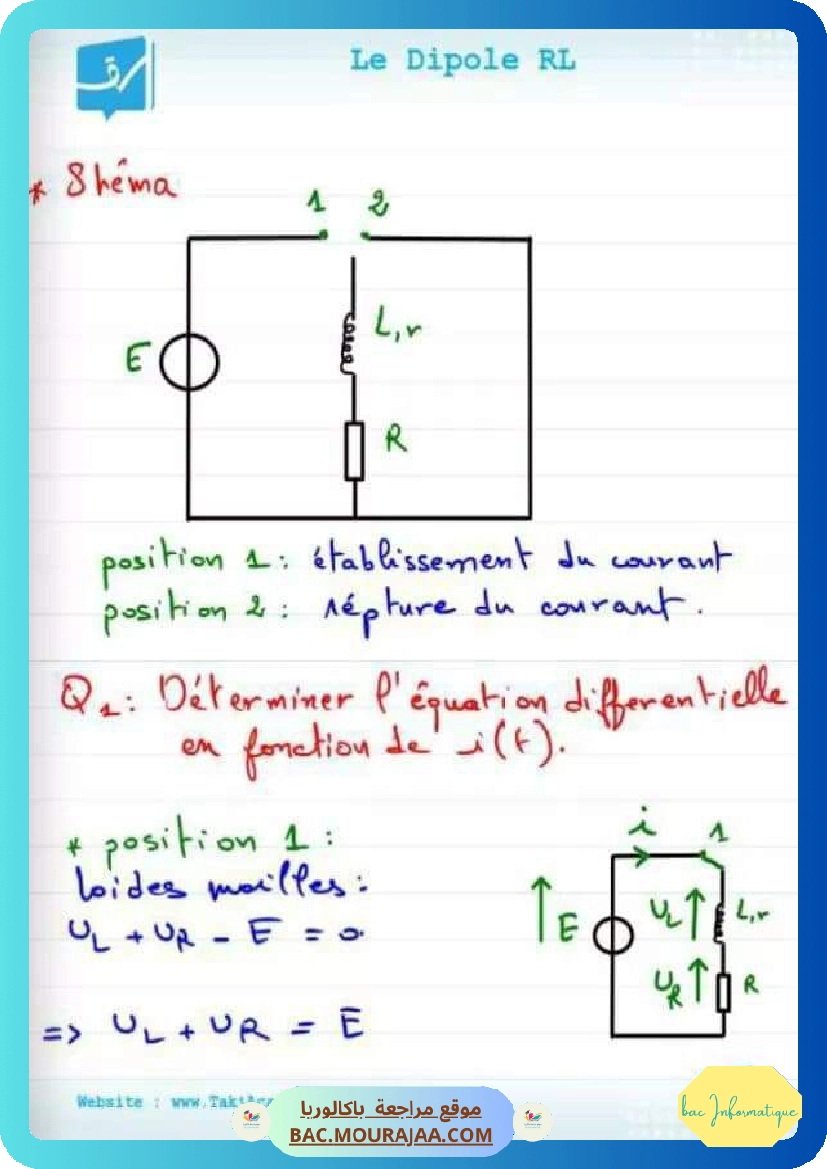 Le Dipole RL
* Shéma
1 2
E
L,r
R
position 1 : établissement du courant
position 2 : répture du courant.
Q1: Déterminer l'équation differentielle
en fonction de i(t).
* position 1 :
loi des mailles :
UL + UR - E = 0
=> UL + UR = E
i 1
E UL L,r
UR R
Website : www.Takt
موقع مراجعة باكالوريا
BAC.MOURAJAA.COM
bac Informatique